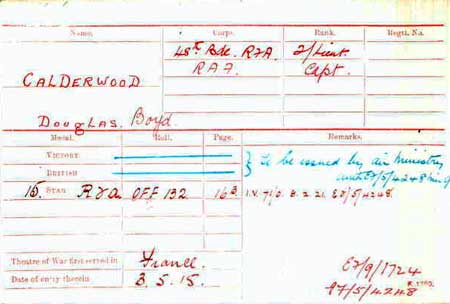 Name. Corps. Rank. Regtl. No.
45th Bde. RFA. 2/Lieut.
CALDERWOOD RAF. Capt.
DOUGLAS. Boyd
Medal. Roll. Page. Remarks.
VICTORY To be issued by Air Ministry
BRITISH
15 STAR RFA OFF 132 16B I.V. 71/0. B. 2 21. E2/5/4248.
Theatre of War first served in France.
Date of entry therein 3.5.15.
E2/9/1724